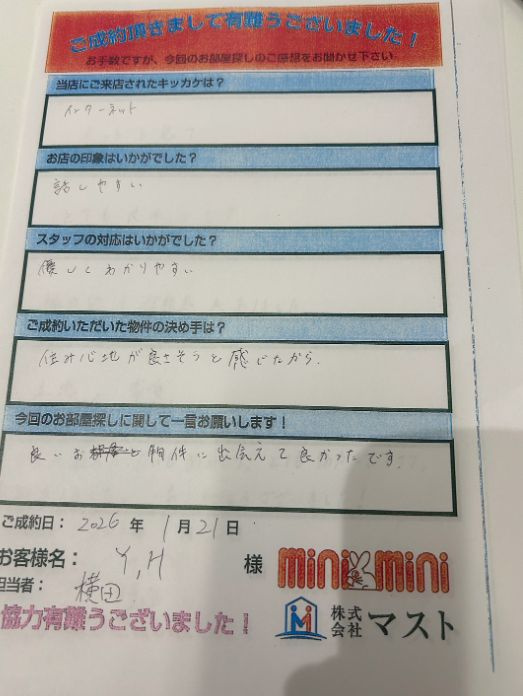 ご成約頂きまして有難うございました!
お手数ですが、今回のお部屋探しのご感想をお聞かせ下さい
当店にご来店されたキッカケは?
インターネット
お店の印象はいかがでした?
話しやすい
スタッフの対応はいかがでした?
優しくわかりやすい
ご成約いただいた物件の決め手は?
住み心地が良さそうと感じたから。
今回のお部屋探しに関して一言お願いします!
良いお物件に出会えて良かったです。
ご成約日: 2026 年 1月 21日
お客様名: Y,H 様
minimini
担当者: 横田
株式会社 マスト
協力有難うございました!